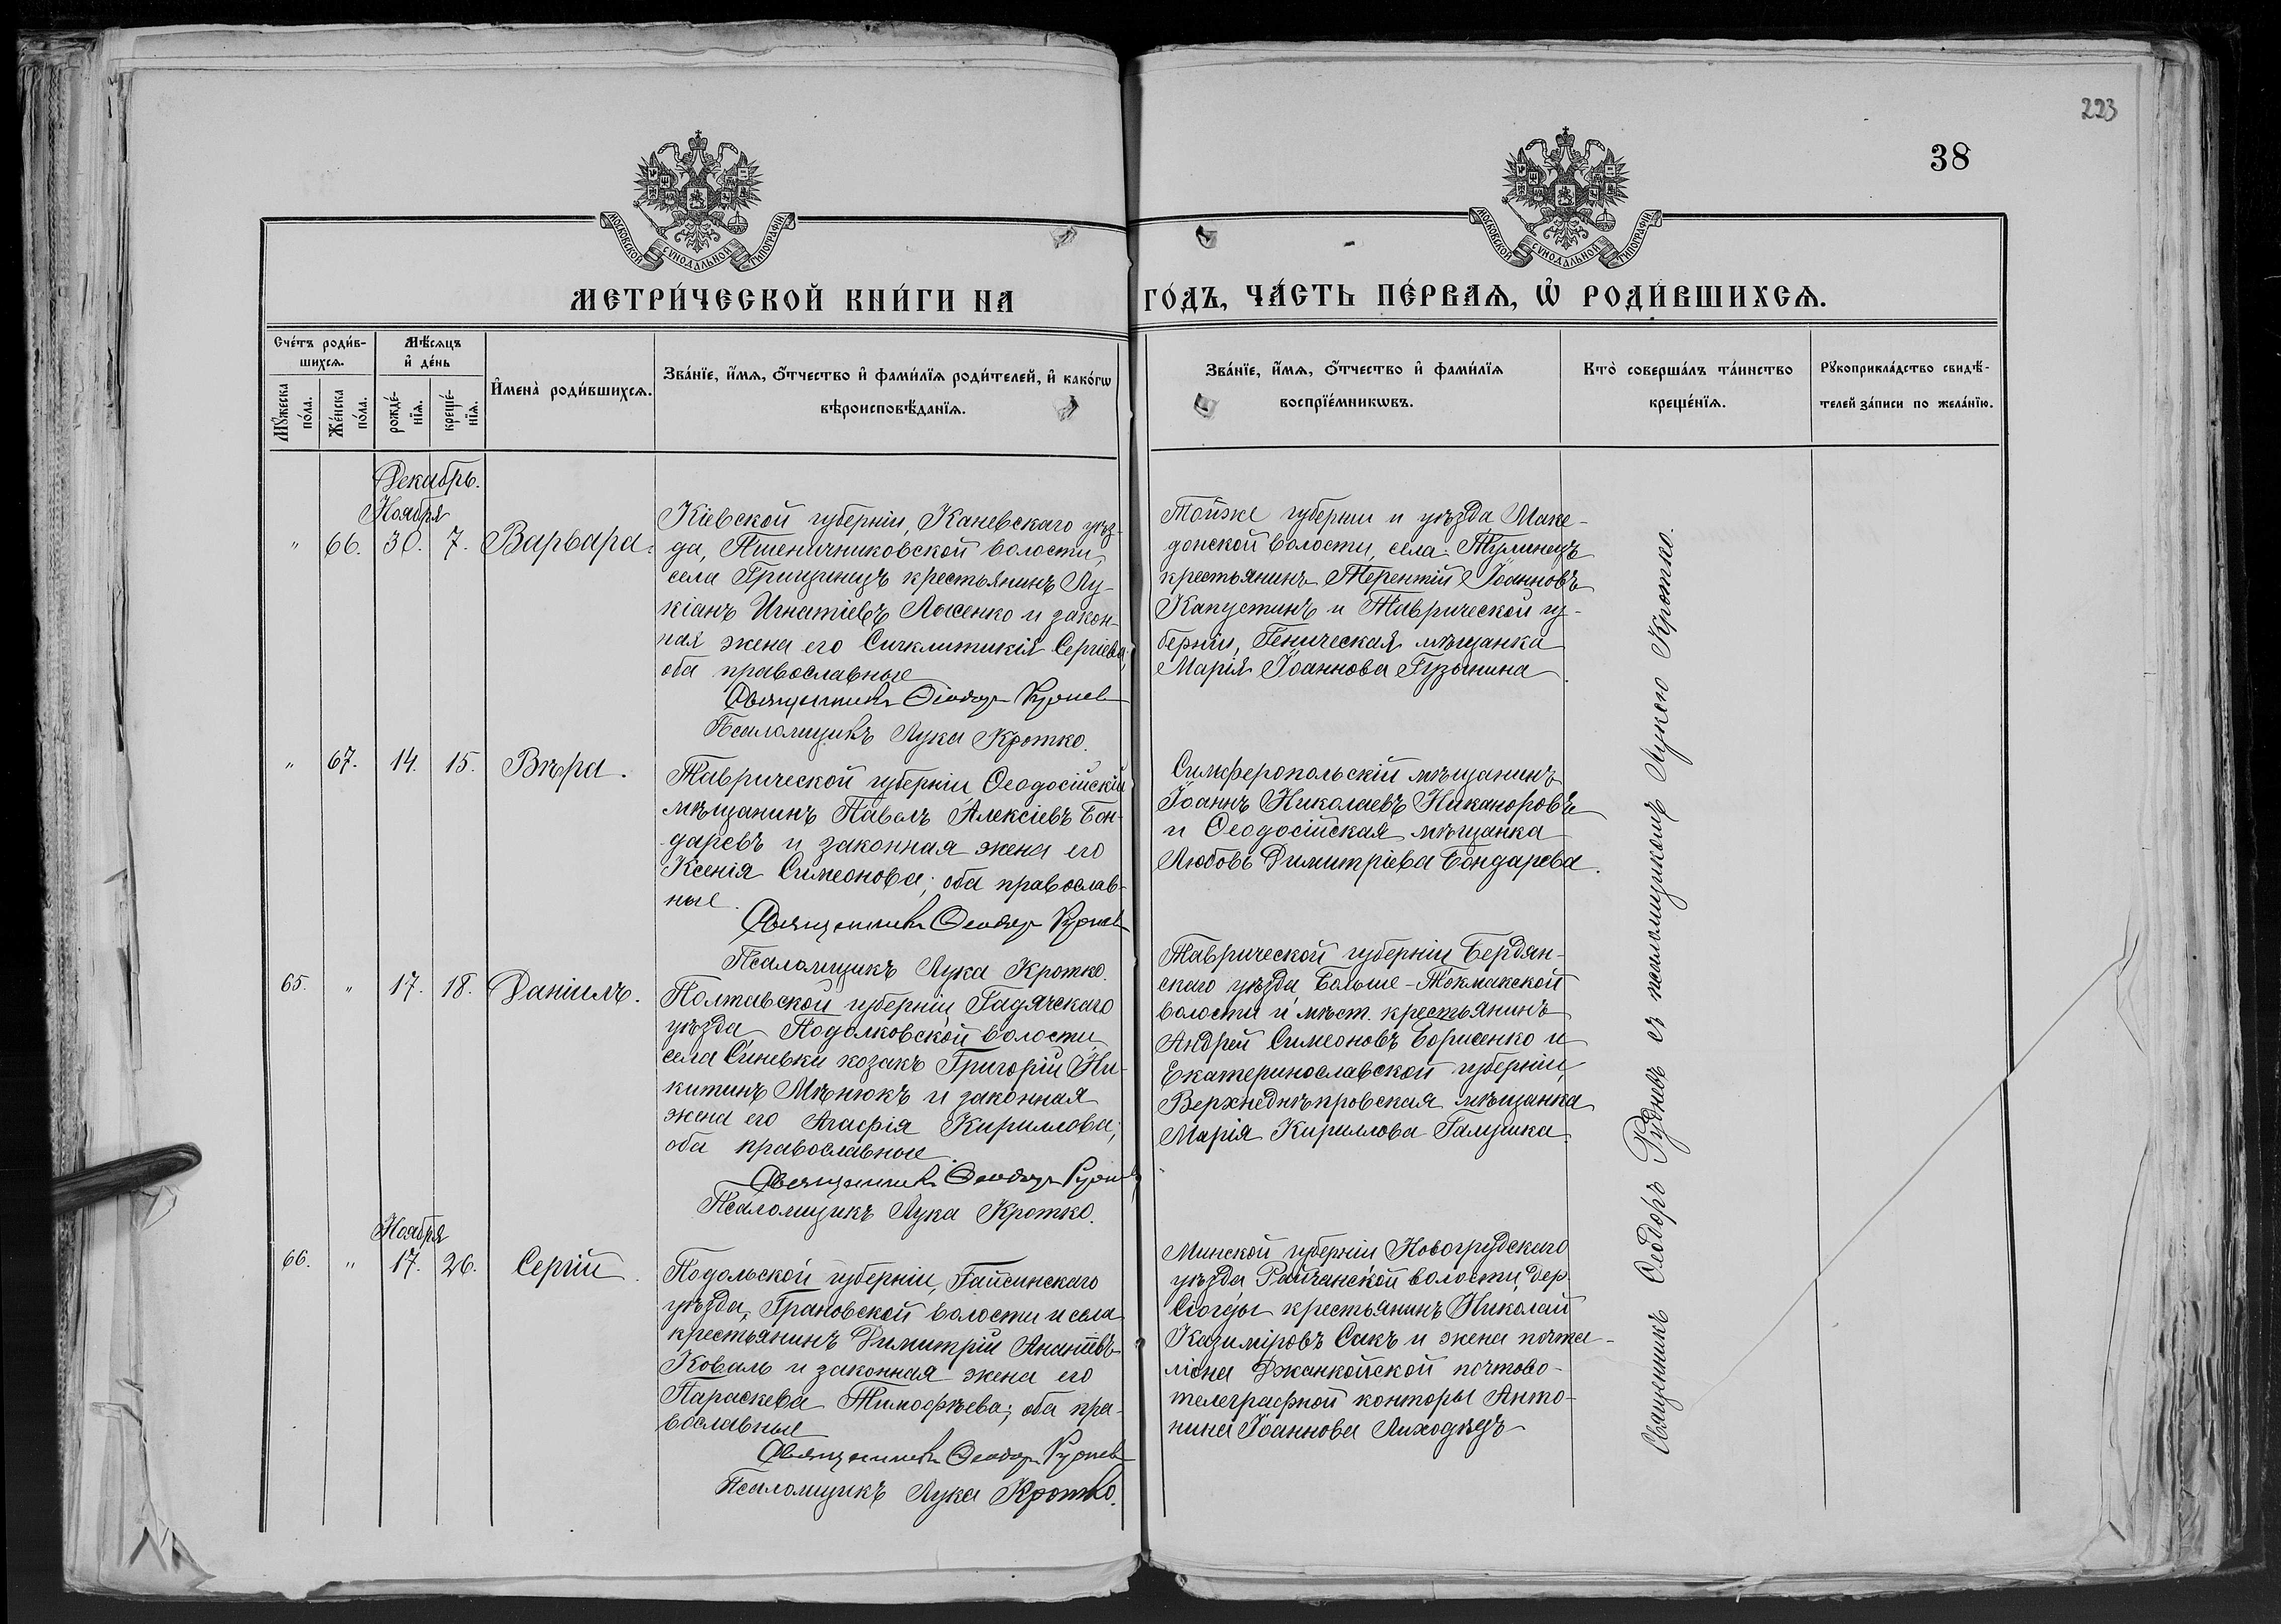 223
38
МОСКОВСКОЙ СѴНОДАЛЬНОЙ ТИПОГРАФІИ
МОСКОВСКОЙ СѴНОДАЛЬНОЙ ТИПОГРАФІИ
МЕТРИ́ЧЕСКОЙ КНИ́ГИ НА
ГО́ДЪ, ЧА́СТЬ ПЕ́РВАЯ, Ѡ҆ РОДИ́ВШИХСЯ.
Сче́тъ роди́в-
шихся.
Мѣ́сяцъ
и҆ де́нь
Му́жеска
по́ла.
Же́нска
по́ла.
рожде́-
нїя.
креще́-
нїя.
И҆мена̀ роди́вшихся.
Зва́нїе, и҆́мя, ѻ҆́тчество и҆ фами́лїя роди́телей, и҆ како́гѡ
вѣроисповѣ́данїя.
Зва́нїе, и҆́мя, ѻ҆́тчество и҆ фами́лїя
воспрїе́мникѡвъ.
Кто̀ соверша́лъ та́инство
креще́нїя.
Рꙋкоприкла́дство свидѣ́-
телей за́писи по жела́нїю.
Декабрь.
Ноября
" 66. 30. 7. Варвара.
Кіевской губерніи, Каневскаго уѣз-
да, Пшеничниковской волости,
села Грищинецъ крестьянинъ Лу-
кіанъ Игнатіевъ Лысенко и закон-
ная жена его Сигклитикія Сергіева,
оба православные
Священникъ Ѳеодоръ Руднев
Псаломщикъ Лука Кротко.
Тойже губерніи и уѣзда, Маке-
донской волости, села Тулинецъ
крестьянинъ Терентій Іоанновъ
Капустинъ и Таврической гу-
берніи, Геническая мѣщанка
Марія Іоаннова Пузынина.
" 67. 14. 15. Вѣра.
Таврической губерніи Ѳеодосійскій
мѣщанинъ Павелъ Алексіевъ Бон-
даревъ и законная жена его
Ксенія Симеонова; оба православ-
ные.
Священникъ Ѳеодоръ Руднев
Псаломщикъ Лука Кротко.
Симферопольскій мѣщанинъ
Іоаннъ Николаевъ Никаноровъ
и Ѳеодосійская мѣщанка
Любовь Димитріева Бондарева.
65. " 17. 18. Даніилъ.
Полтавской губерніи, Гадячскаго
уѣзда Подолковской волости
села Синевки козакъ Григорій Ни-
китинъ Мѣнюкъ и законная
жена его Агафія Кириллова;
оба православные.
Священникъ Ѳеодоръ Руднев
Псаломщикъ Лука Кротко.
Таврической губерніи Бердян-
скаго уѣзда, Больше-Токмакской
волости и мѣст. крестьянинъ
Андрей Симеоновъ Борисенко и
Екатеринославской губерніи,
Верхнеднѣпровская мѣщанка
Марія Кириллова Галушка.
Ноября
66. " 17. 26. Сергій.
Подольской губерніи, Гайсинскаго
уѣзда, Грановской волости и села
крестьянинъ Димитрій Ананіевъ
Коваль и законная жена его
Параскева Тимофѣева; оба пра-
вославные
Священникъ Ѳеодоръ Руднев
Псаломщикъ Лука Кротко.
Минской губерніи Новогрудскаго
уѣзда Райчанской волости, дер.
крестьянинъ Николай
Казиміровъ Сакъ и жена почта-
ліона Джанкойской почтово-
телеграфной конторы Анто-
нина Іоаннова Лиходѣдъ
Священникъ Ѳеодоръ Рудневъ съ псаломщикомъ Лукою Кротко.